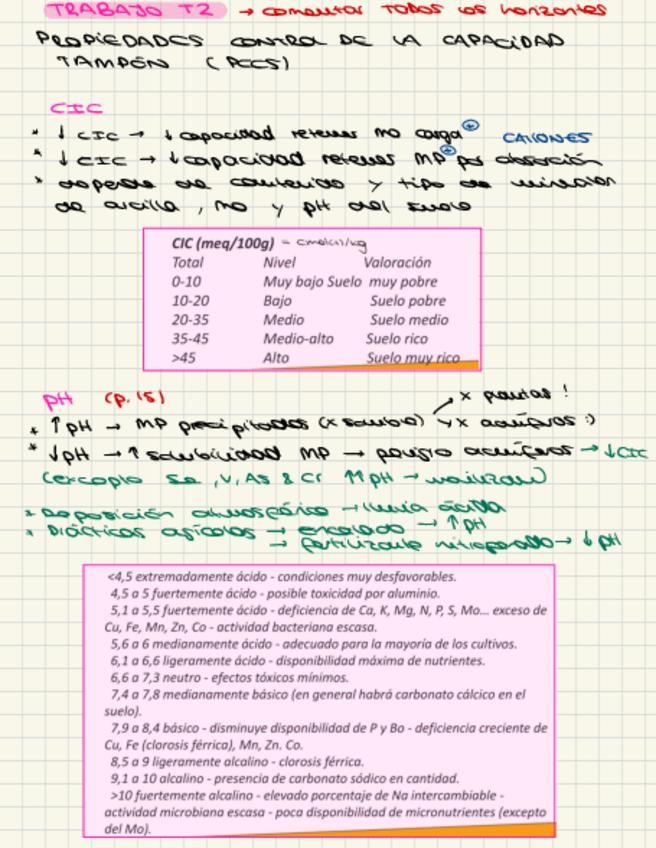 TRABAJO T2 → comentar TODOS los horizontes
PROPIEDADES CONTROL DE LA CAPACIDAD
TAMPÓN (PCCS)
CIC
* ↓ CIC → ↓ capacidad retener mo carga ⊕ CATIONES
* ↓ CIC → ↓ capacidad retener MP⊕ por absorción
* depende de contenido y tipo de mineral
de arcilla, mo y pH del suelo
CIC (meq/100g) = cmolc(+)/kg
Total Nivel Valoración
0-10 Muy bajo Suelo muy pobre
10-20 Bajo Suelo pobre
20-35 Medio Suelo medio
35-45 Medio-alto Suelo rico
>45 Alto Suelo muy rico
pH (p.15) x plantas !
* ↑ pH → MP precipitados (x soluble) x acuíferos :)
* ↓ pH → ↑ solubilidad MP → peligro acuíferos → ↓ CIC
(excepto Se, V, As & Cr ↑↑ pH → movilizan)
* Deposición atmosférica → lluvia ácida
* Prácticas agícolas → encalado → ↑ pH
→ fertilizante nitrogenado → ↓ pH
<4,5 extremadamente ácido - condiciones muy desfavorables.
4,5 a 5 fuertemente ácido - posible toxicidad por aluminio.
5,1 a 5,5 fuertemente ácido - deficiencia de Ca, K, Mg, N, P, S, Mo... exceso de
Cu, Fe, Mn, Zn, Co - actividad bacteriana escasa.
5,6 a 6 medianamente ácido - adecuado para la mayoría de los cultivos.
6,1 a 6,6 ligeramente ácido - disponibilidad máxima de nutrientes.
6,6 a 7,3 neutro - efectos tóxicos mínimos.
7,4 a 7,8 medianamente básico (en general habrá carbonato cálcico en el
suelo).
7,9 a 8,4 básico - disminuye disponibilidad de P y Bo - deficiencia creciente de
Cu, Fe (clorosis férrica), Mn, Zn. Co.
8,5 a 9 ligeramente alcalino - clorosis férrica.
9,1 a 10 alcalino - presencia de carbonato sódico en cantidad.
>10 fuertemente alcalino - elevado porcentaje de Na intercambiable -
actividad microbiana escasa - poca disponibilidad de micronutrientes (excepto
del Mo).